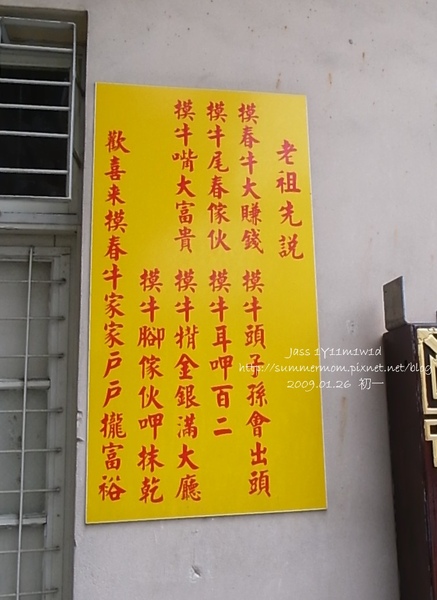 老祖先説
摸春牛大賺錢 摸牛頭子孫會出頭
摸牛尾春傢伙 摸牛耳呷百二
摸牛嘴大富貴 摸牛揹金銀滿大廳
摸牛腳傢伙呷抹乾
歡喜来摸春牛家家戶戶攏富裕
Jass 1Y11m1w1d
http://summermom.pixnet.net/blog
2009.01.26 初一